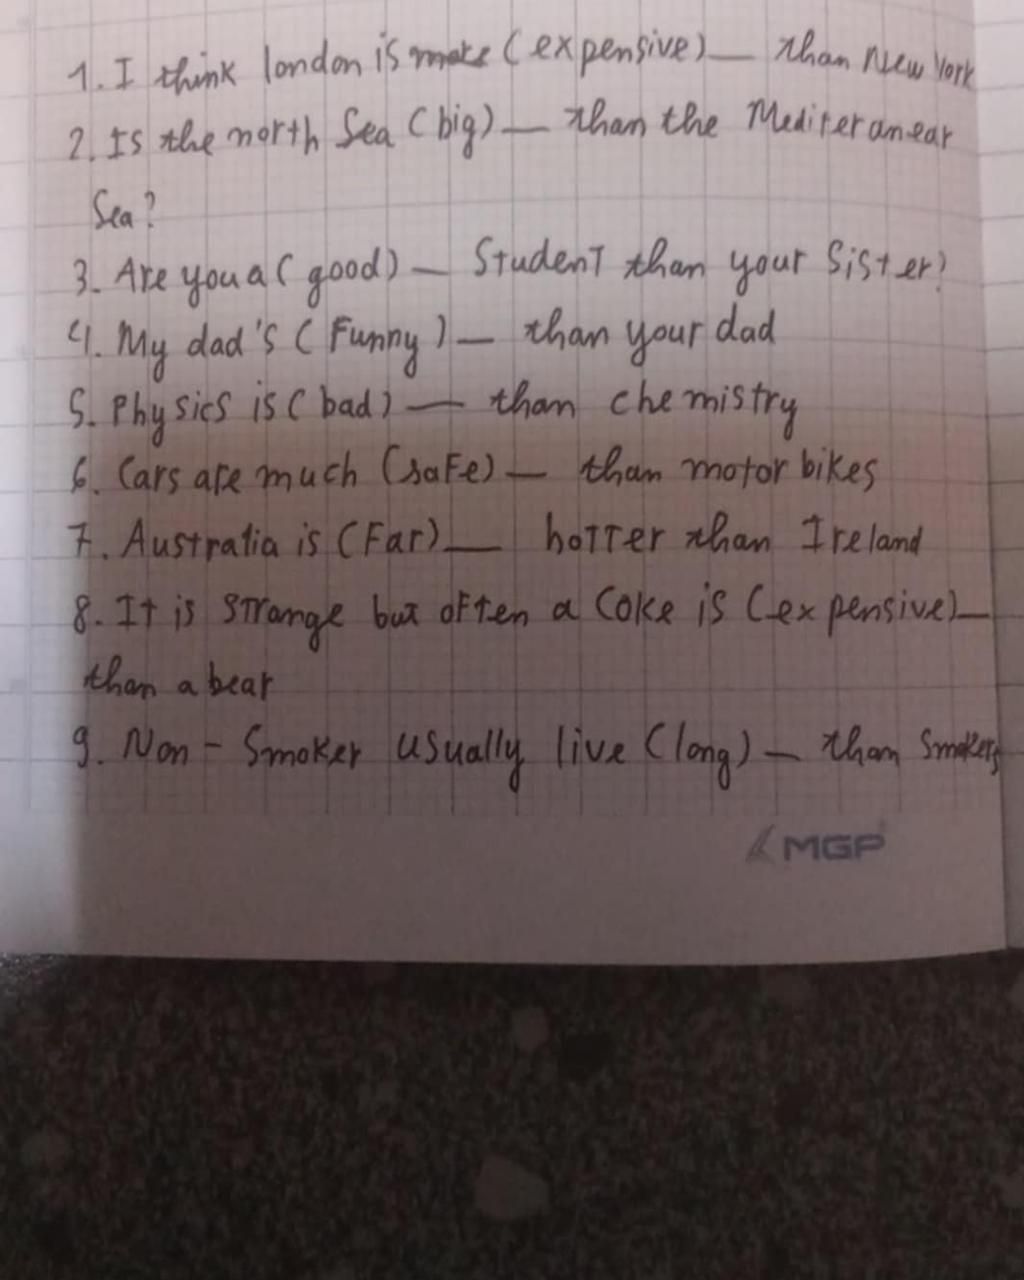 1. I think london is more (expensive)_ than New York
2. Is the north Sea (big)_ than the Mediteranear
Sea?
3. Are you a (good)_ Student than your Sister?
4. My dad's (Funny)_ than your dad
5. Physics is (bad)_ than chemistry
6. Cars are much (safe)_ than motor bikes
7. Australia is (Far)_ hotter than Ireland
8. It is strange but often a Coke is (expensive)_
than a bear
9. Non-Smoker usually live (long)_ than Smokers
MGP